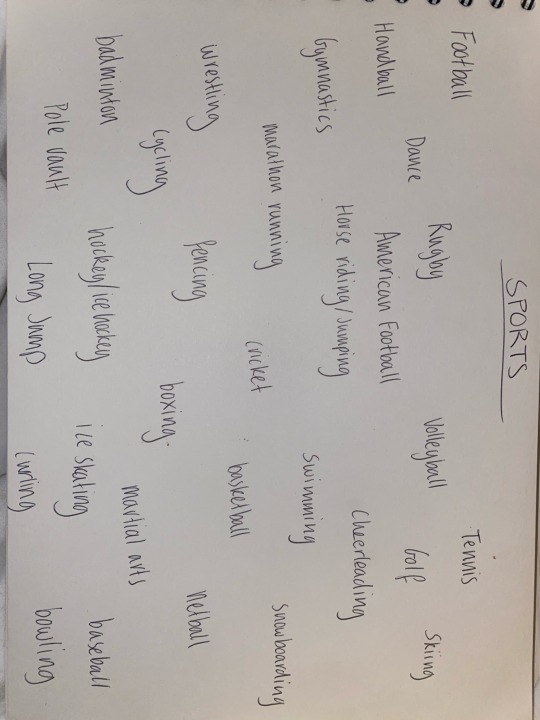 SPORTS
Football
Tennis
Rugby
Volleyball
Skiing
Handball
Dance
American Football
Golf
Gymnastics
Horse riding/Jumping
Cheerleading
marathon running
Swimming
Snowboarding
wrestling
cricket
basketball
cycling
fencing
boxing.
netball
badminton
hockey/icehockey
martial arts
Pole vault
ice skating
baseball
Long Jump
Curling
bowling